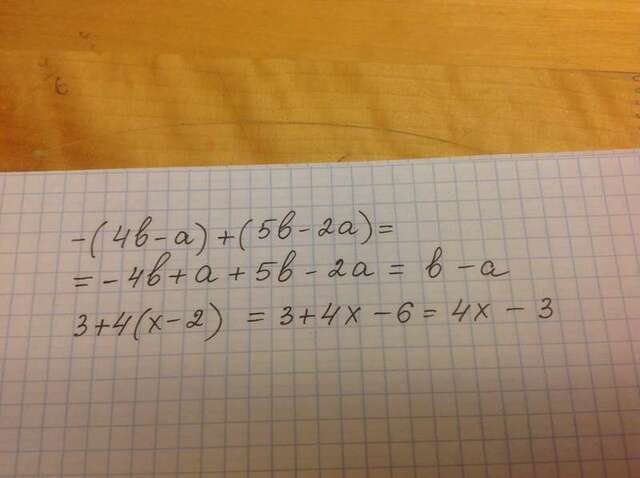 -(4в-а)+(5в-2а)=
=-4в+а+5в-2а = в-а
3+4(х-2) = 3+4х-6=4х-3